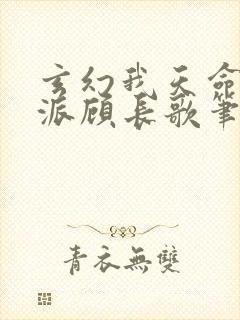 玄幻我天命
派顾长歌笔
青衣無雙